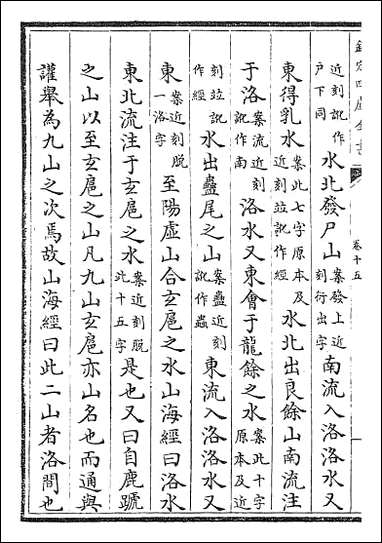 欽定四庫全書 卷十五
近刻訛作户下同水北發尸山案發上近刻衍出字南流入洛洛水又
東得乳水案此七字原本及近刻並訛作經水北出良餘山南流注
于洛案流近刻訛作南洛水又東會于龍餘之水案此十字原本及近
刻竝訛作經水出蠱尾之山案蠱近刻訛作蟲東流入洛洛水又
東案近刻脱一洛字至陽虛山合玄扈之水山海經曰洛水
東北流注于玄扈之水案近刻脱此十五字是也又曰自鹿蹏
之山以至玄扈之山凡九山玄扈亦山名也而通與
讙舉為九山之次焉故山海經曰此二山者洛間也